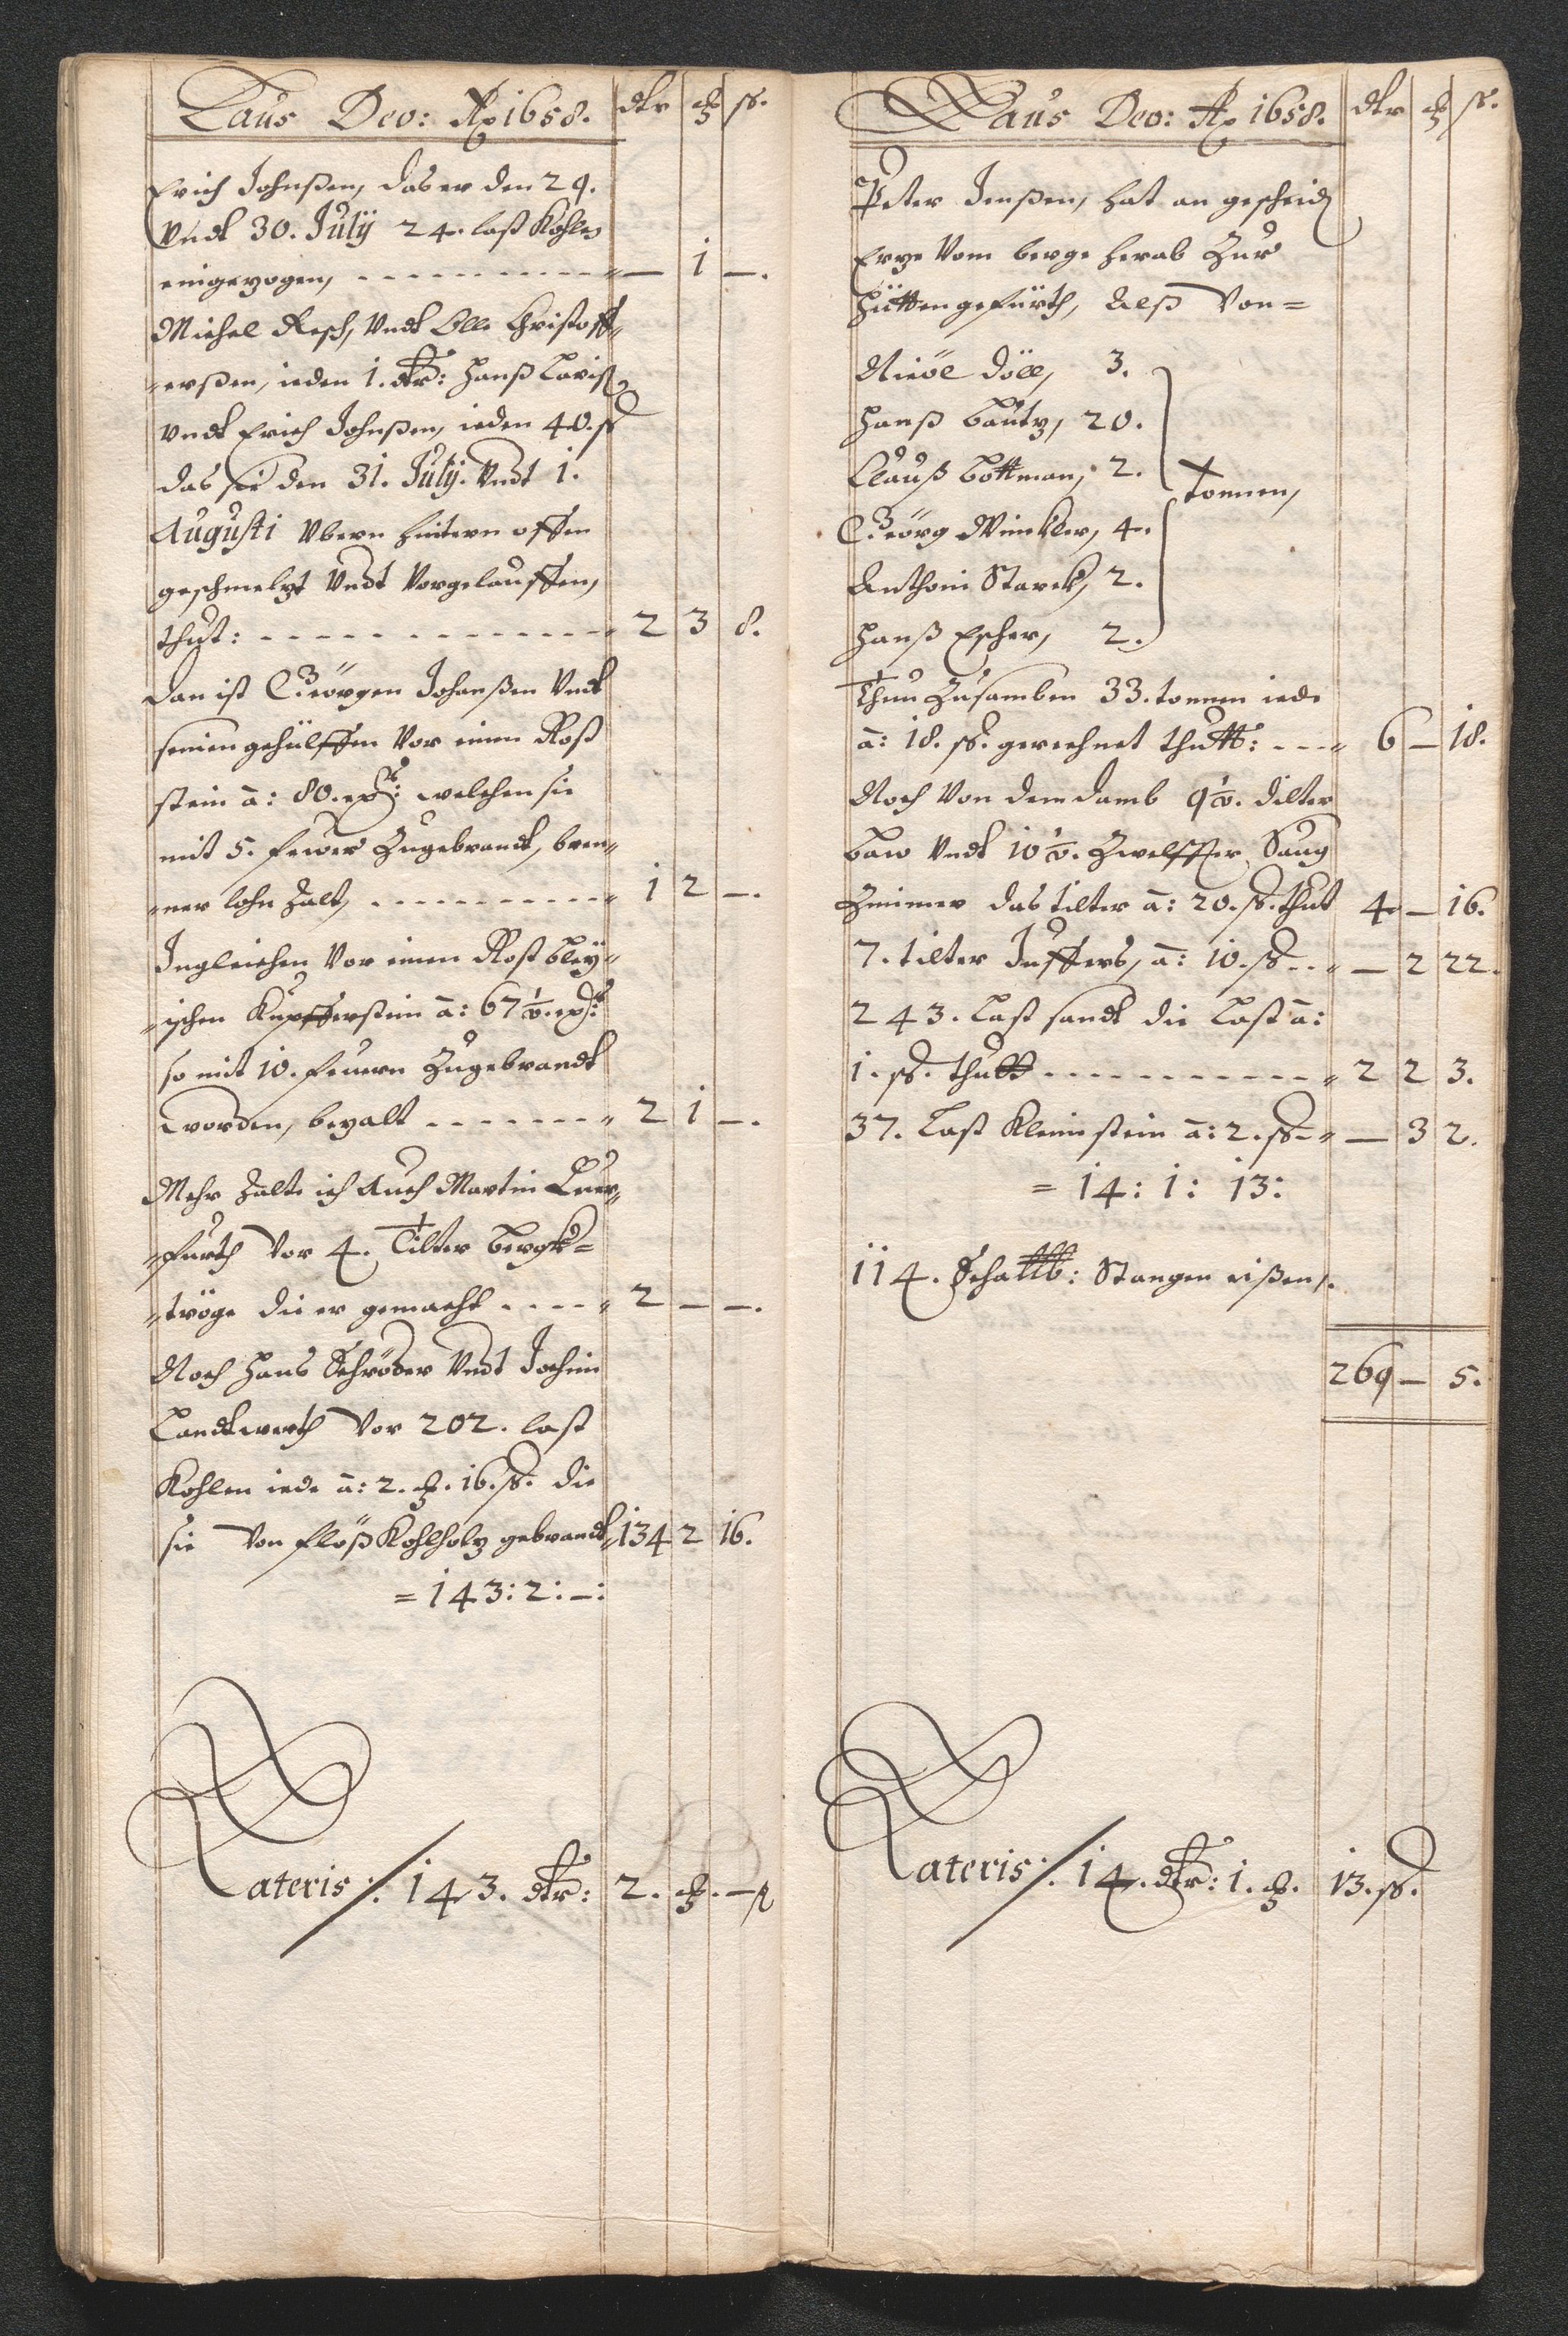 Laus Deo: Ao 1658. dlr ₰ ss.
Erich Johnßen, das er den 29.
Vndt 30. Julÿ 24. last Kohlen
eingezogen, — 1 —.
Michel Resch, Vndt Olle Christoff„
„erßen, ieden 1. dlr: Hanß
Vndt Erich Johnßen, ieden 40. ss
das sie den 31. Julÿ. Vndt 1.
Augusti Vbern hintern offen
geschmeltzt Vndt Vorgelauffen,
thut: 2 3 8.
Dan ist Geörgen Johanßen Vndt
seinen gehülffen Vor einen Rost
stein â: 80. welchen sie
mit 5. feuer Zugebrandt, bren„
„ner lohn Zalt, 1 2 —.
Ingleichen Vor einen Rost bleÿ„
„ischen Kupfferstein â: 67½.
so mit 10. feuern Zugebrandt
worden, bezalt 2 1 —.
Mehr Zalte ich Auch Martin Quer„
„furth Vor 4. Tilter bergk=
„tröge die er gemacht 2 — —.
Noch Hans Schröder Vndt Jochim
Landtwerth Vor 202. last
Kohlen iede â: 2. ₰. 16. ss. die
sie Von flöß Kohlholtz gebrandt 134 2 16.
= 143: 2: —:
Lateris: 143. dlr: 2. ₰. —
Laus Deo: Ao 1658. dlr ₰ ss.
Peter Jenßen, hat an gescheid
Ertze Vom berge herab Zur
Hütten gefürth, Alß Von=
Döll, 3.
Hanß Bautz, 20.
Clauß Bottman, 2.
tonnen,
Geörg Winckler, 4.
Anthoni Starck, 2.
Hanß Escher, 2.
Thun Zusamben 33. tonnen iede
â: 18. ss. gerechnet thutt: 6 — 18.
Noch Von dem damb 9½. dilter
baw Vndt 10½. Zwelffer Saug
Zimmer das tilter â: 20. ss. thut 4 — 16.
7. tilter Juffers, â: 10. ss — 2 22.
243. Last sandt die Last â:
1. ss. thutt 2 2 3.
37. Last Kleinstein â: 2. ss — 3 2.
= 14: 1: 13:
114. Schattb: Stangen eißen,
269 — 5.
Lateris: 14. dlr: 1. ₰. 13. ss.